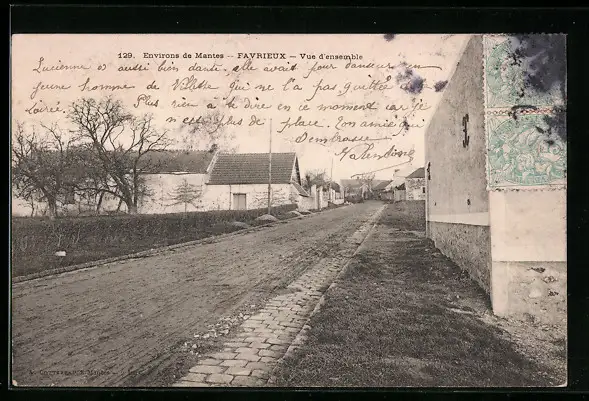 129. Environs de Mantes -- FAVRIEUX — Vue d'ensemble
Lucienne a aussi bien danté elle avait pour danseur un
jeune homme de Villette qui ne l'a pas quittée de la
soirée Plus rien à te dire en ce moment car je
n'ai plus de place. Ton amie qui
t'embrasse
Valentine